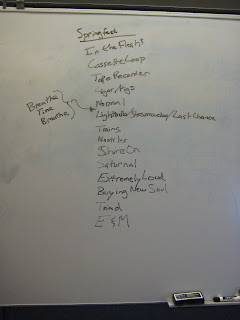 Springfest
In the Flesh?
Cassette Loop
Tape Recorder
Cigar/Pigs
Normal
Breathe
Time
Breathe
Lightbulb/Steamroller/Last Chance
Trains
Nautilus
Shine On
Saturnal
Extremely Loud
Buying New Soul
Triad
E & M